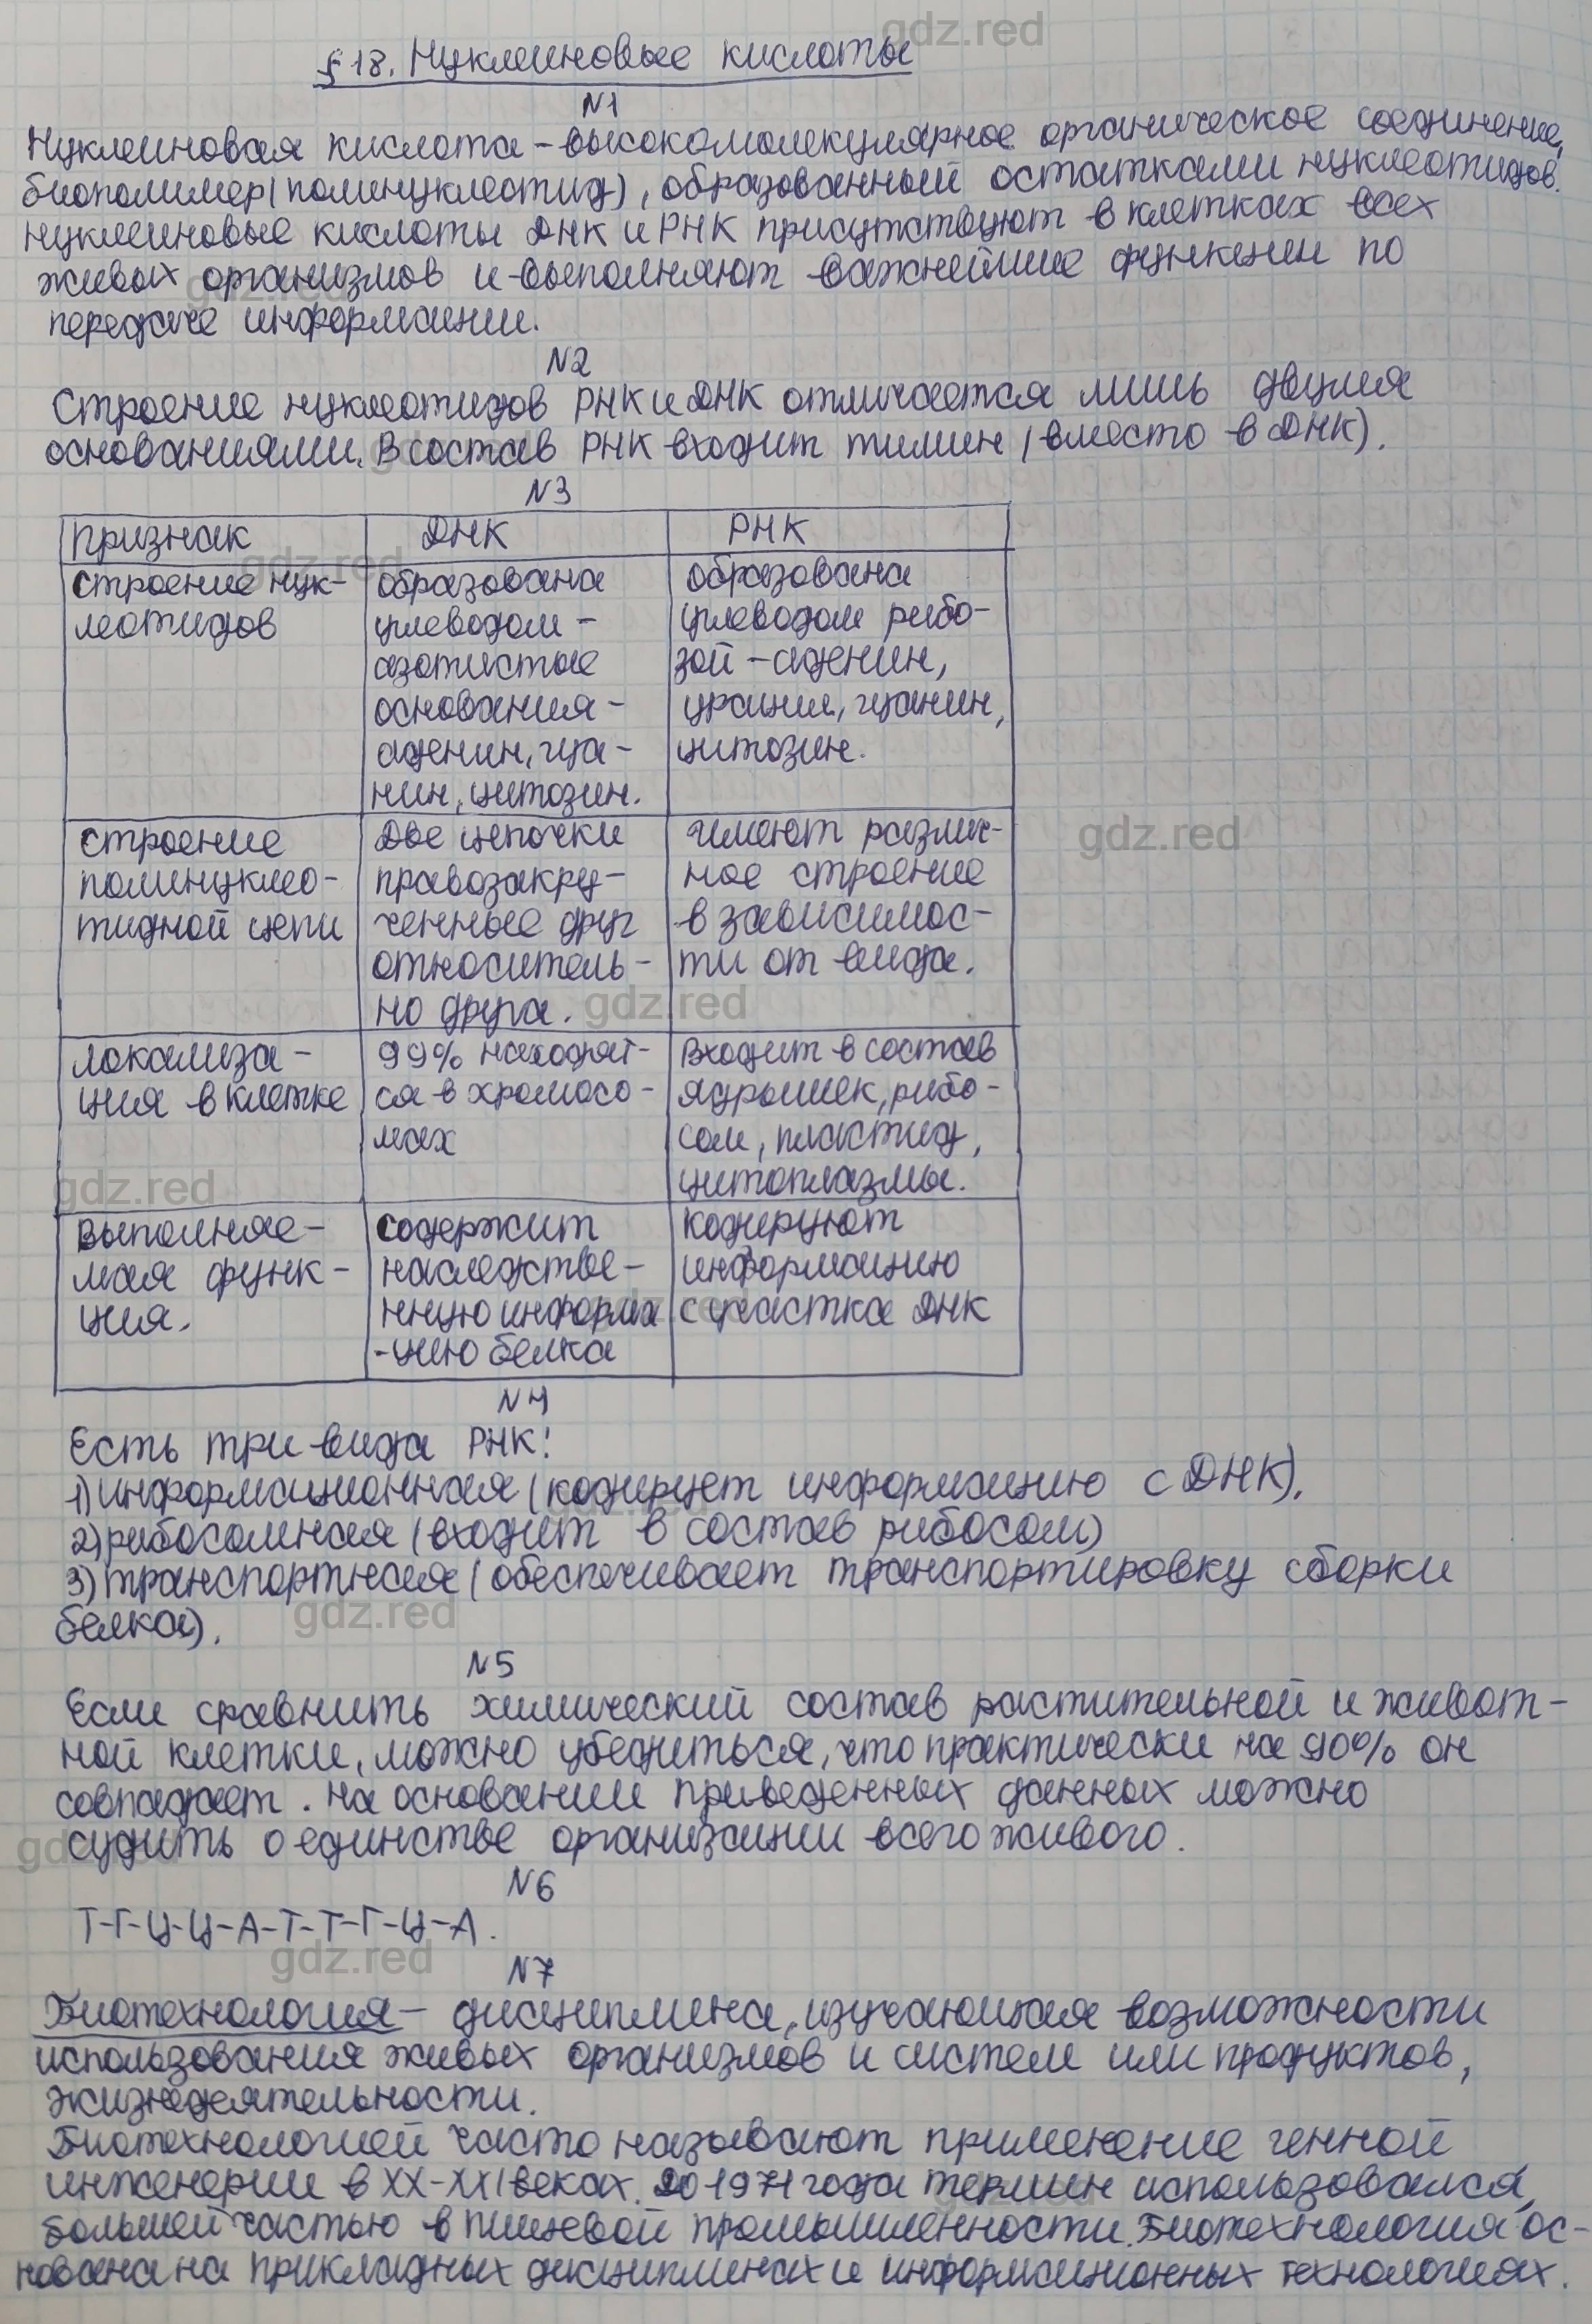 §18. Нуклеиновые кислоты
N1
Нуклеиновая кислота - высокомолекулярное органическое соединение,
биополимер (полинуклеотид), образованный остатками нуклеотидов.
Нуклеиновые кислоты ДНК и РНК присутствуют в клетках всех
живых организмов и выполняют важнейшие функции по
передаче информации.
N2
Строение нуклеотидов РНК и ДНК отличается лишь двумя
основаниями. В состав РНК входит тимин (вместо в ДНК).
N3
признак ДНК РНК
строение нук-
леотидов
образована
углеводом -
азотистые
основания -
аденин, гуа-
нин, цитозин.
образована
углеводом рибо-
зой - аденин,
урацил, гуанин,
цитозин.
строение
полинуклео-
тидной цепи
Две цепочки
правозакру-
ченные друг
относитель-
но друга.
имеют различ-
ное строение
в зависимос-
ти от вида.
локализа-
ция в клетке
99% находят-
ся в хромосо-
мах
Входит в состав
ядрышек, рибо-
сом, пластид,
цитоплазмы.
выполняе-
мая функ-
ция.
содержит
наследстве-
нную информа
-цию белка
кодируют
информацию
с участка ДНК
N4
Есть три вида РНК:
1) информационная (кодирует информацию с ДНК),
2) рибосомная (входит в состав рибосом)
3) транспортная (обеспечивает транспортировку сборки
белка).
N5
Если сравнить химический состав растительной и живот-
ной клетки, можно убедиться, что практически на 90% он
совпадает. На основании приведенных данных можно
судить о единстве организации всего живого.
N6
Т-Г-Ц-Ц-А-Т-Т-Г-Ц-А.
N7
Биотехнология - дисциплина, изучающая возможности
использования живых организмов и систем или продуктов,
жизнедеятельности.
Биотехнологией часто называют применение генной
инженерии в XX-XXI веках. До 1971 года термин использовался,
большей частью в пищевой промышленности. Биотехнология ос-
нована на прикладных дисциплинах и информационных технологиях.
gdz.red
gdz.red
gdz.red
gdz.red
gdz.red
gdz.red
gdz.red
gdz.red
gdz.red
gdz.red
gdz.red
gdz.red
gdz.red